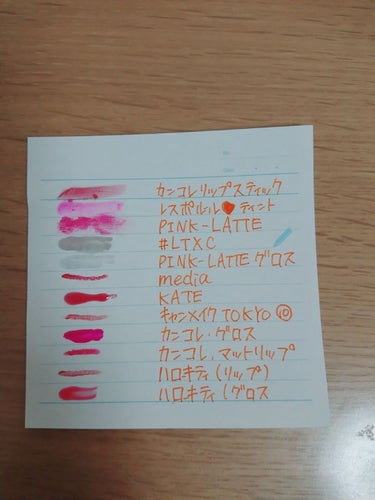 カンコレリップスティック
レスポルル ティント
PINK-LATTE
#LTXC
PINK-LATTE グロス
media
KATE
キャンメイク TOKYO ⑩
カンコレ・グロス
カンコレ、マットリップ
ハロキティ(リップ)
ハロキティ(グロス